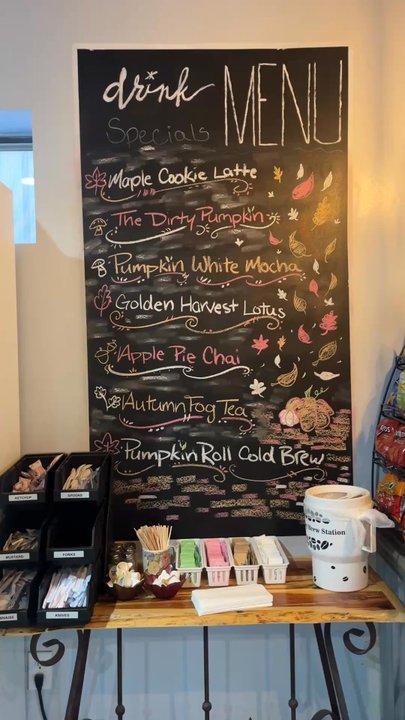 drink MENU
Specials
Maple Cookie Latte
The Dirty Pumpkin
Pumpkin White Mocha
Golden Harvest Lotus
Apple Pie Chai
Autumn Fog Tea
Pumpkin Roll Cold Brew
KETCHUP
SPOONS
MUSTARD
FORKS
KNIVES
Brew Station